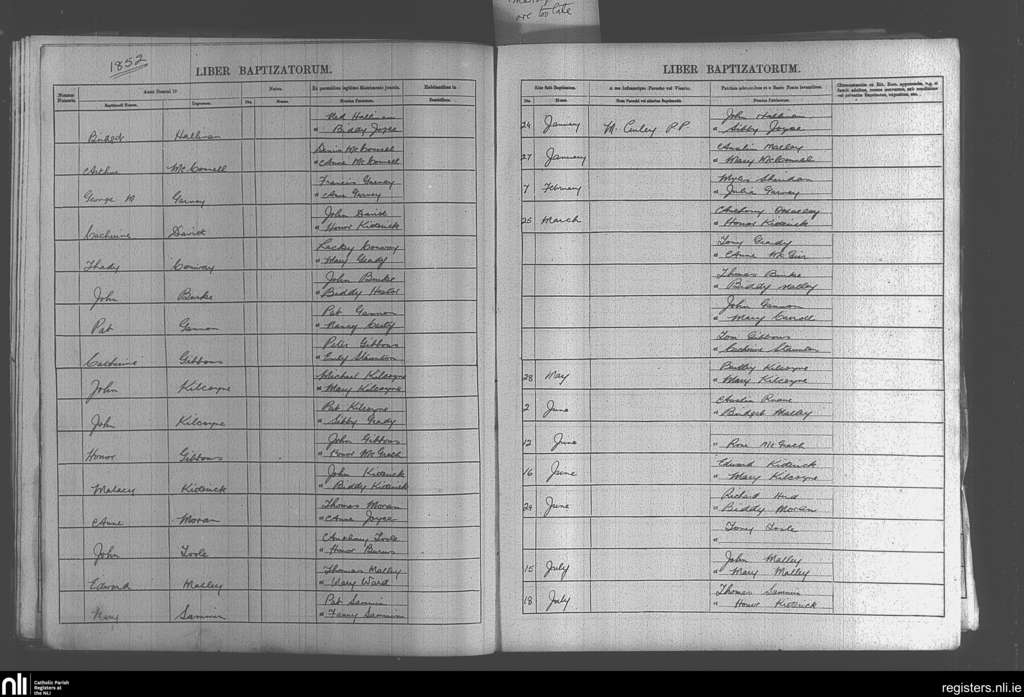 are too late
1852
LIBER BAPTIZATORUM.
Anno Domini 18
Nomen.
Baptizati Nomen.
Cognomen.
Die.
Mense.
Nomina Parentum.
Bridget Hallinan Ned Hallinan
" Biddy Joyce
Arthur McConnell Denis McConnell
" Anne McConnell
George M Garvey Francis Garvey
" Ann Garvey
Catherine David John David
" Honor Kiderick
Thady Conway Lackey Conway
" Mary Grady
John Burke John Burke
" Biddy Hestor
Pat Gannon Pat Gannon
" Nancy
Catherine Gibbons Peter Gibbons
" Staunton
John Kilcoyne Michael Kilcoyne
" Mary Kilcoyne
John Kilcoyne Pat Kilcoyne
" Sibby Grady
Honor Gibbons John Gibbons
" Honor McGrath
Malacy Kiderick John Kiderick
" Biddy Kiderick
Anne Moran Thomas Moran
" Anne Joyce
John Toole Anthony Toole
" Honor Burns
Edward Malley Thomas Malley
" Mary Ward
Mary Sammin Pat Sammin
" Fanny Sammin
LIBER BAPTIZATORUM.
Die.
Mense.
Nomina Patrinorum.
24 January M. Curley P.P. John Hallinan
" Sibby Joyce
27 January Austin Malley
" Mary McConnell
7 February Myles Sheridan
" Julia Garvey
25 March Anthony
" Honor Kiderick
Tony Grady
" Anne
Thomas Burke
" Biddy Malley
John Gannon
" Mary Carroll
Tom Gibbons
" Catherine Staunton
28 May Kilcoyne
" Mary Kilcoyne
2 June Austin Ruane
" Bridget Malley
12 June
" Rose McGrath
16 June Edward Kiderick
" Mary Kilcoyne
29 June Richard
" Biddy Moran
Tony Toole
"
15 July John Malley
" Mary Malley
18 July Thomas Sammin
" Honor Kiderick
nli
Catholic Parish
Registers at
the NLI
registers.nli.ie